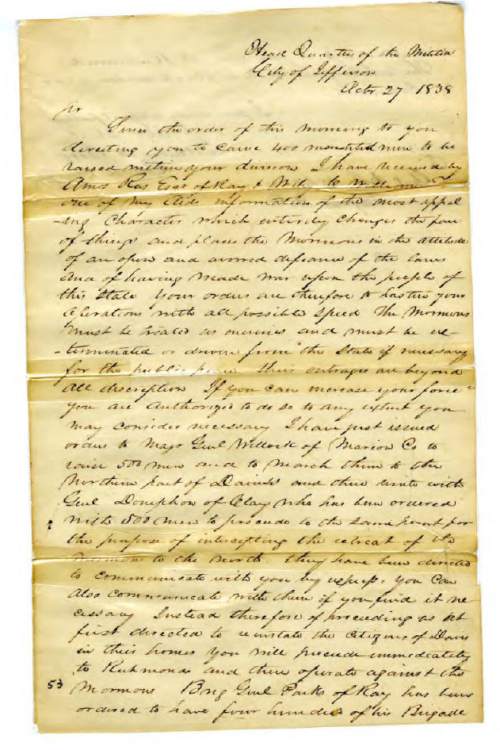 Head Quarters of the Militia
City of Jefferson
Octr 27 1838
Sir
Since the order of this morning to you
directing you to cause 400 mounted men to be
raised within your division I have received by
Amos Rees Esqr of Ray &
one of my aids information of the most appal
-ing Character which entirely Changes the face
of things and places the Mormons in the attitude
of an open and avowed defiance of the laws
and of having made war upon the people of
this State Your orders are therefore to hasten your
operations with all possible speed The Mormons
must be treated as enemies and must be ex-
-terminated or driven from the State if necessary
for the public peace their outrages are beyond
all description If you can increase your force
you are authorized to do so to any extent you
may consider necessary I have just issued
orders to Majr Genl of Marion Co to
raise 500 men and to march them to the
Northern part of Daviess and there unite with
Genl Doniphan of Clay who has been ordered
with 500 men to proceed to the same point for
the purpose of intercepting the retreat of the
Mormons to the North they have been directed
to communicate with you by express You can
also communicate with them if you find it ne
cessary Instead therefore of proceeding as at
first directed to reinstate the Citizens of Daviess
in their homes you will proceed immediately
to Richmond and there operate against the
53 Mormons Brig Genl Parks of Ray has been
ordered to have four hundred of his Brigade